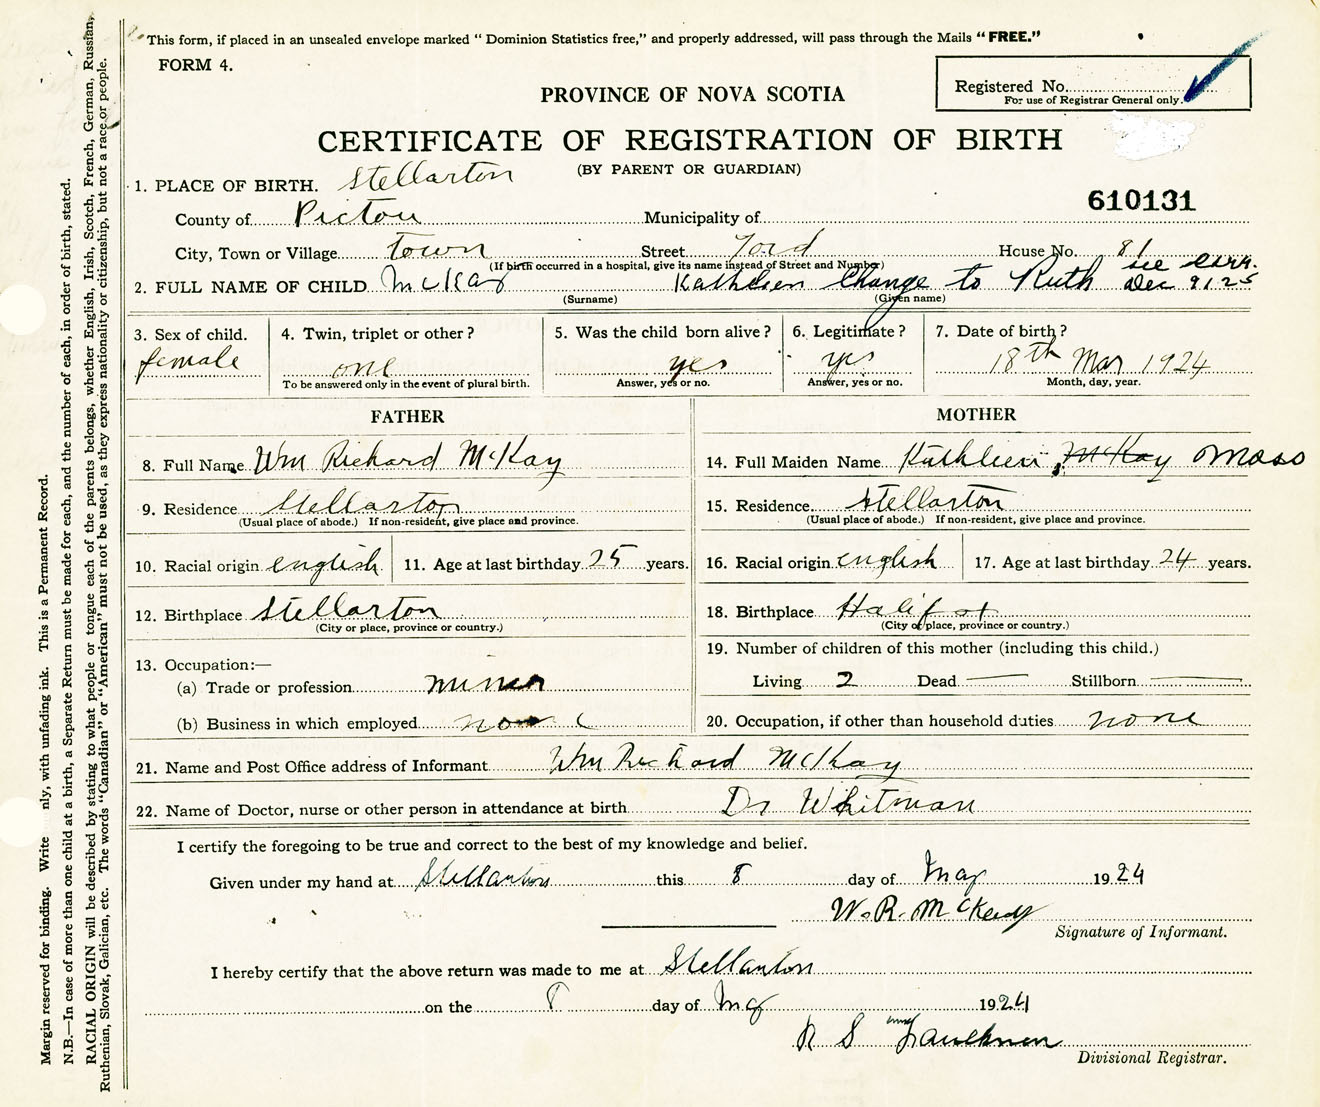 This form, if placed in an unsealed envelope marked "Dominion Statistics free," and properly addressed, will pass through the Mails "FREE."
FORM 4.
Registered No.
For use of Registrar General only.
PROVINCE OF NOVA SCOTIA
CERTIFICATE OF REGISTRATION OF BIRTH
(BY PARENT OR GUARDIAN)
1. PLACE OF BIRTH. Stellarton
610131
County of Pictou Municipality of
City, Town or Village Town Street Ford House No. 81
(If birth occurred in a hospital, give its name instead of Street and Number)
see corr.
2. FULL NAME OF CHILD McKay Kathleen Change to Ruth Dec 9/25
(Surname) (Given name)
3. Sex of child. 4. Twin, triplet or other? 5. Was the child born alive? 6. Legitimate? 7. Date of birth?
female one yes yes 18th Mar 1924
To be answered only in the event of plural birth. Answer, yes or no. Answer, yes or no. Month, day, year.
FATHER MOTHER
8. Full Name Wm Richard McKay 14. Full Maiden Name Kathleen McKay Moss
9. Residence Stellarton 15. Residence. Stellarton
(Usual place of abode.) If non-resident, give place and province. (Usual place of abode.) If non-resident, give place and province.
10. Racial origin english 11. Age at last birthday 25 years. 16. Racial origin english 17. Age at last birthday 24 years.
12. Birthplace Stellarton 18. Birthplace Halifax
(City or place, province or country.) (City of place, province or country.)
13. Occupation:— 19. Number of children of this mother (including this child.)
(a) Trade or profession miner Living 2 Dead — Stillborn —
(b) Business in which employed none 20. Occupation, if other than household duties none
21. Name and Post Office address of Informant Wm Richard McKay
22. Name of Doctor, nurse or other person in attendance at birth Dr Whitman
I certify the foregoing to be true and correct to the best of my knowledge and belief.
Given under my hand at Stellarton this 8 day of May 1924
W. R. McKay
Signature of Informant.
I hereby certify that the above return was made to me at Stellarton
on the 8 day of May 1924
Faulkner
Divisional Registrar.
Margin reserved for binding. Write nly, with unfading ink. This is a Permanent Record.
N.B.—In case of more than one child at a birth, a Separate Return must be made for each, and the number of each, in order of birth, stated.
RACIAL ORIGIN will be described by stating to what people or tongue each of the parents belongs, whether English, Irish, Scotch, French, German, Russian,
Ruthenian, Slovak, Galician, etc. The words "Canadian" or "American" must not be used, as they express nationality or citizenship, but not a race or people.